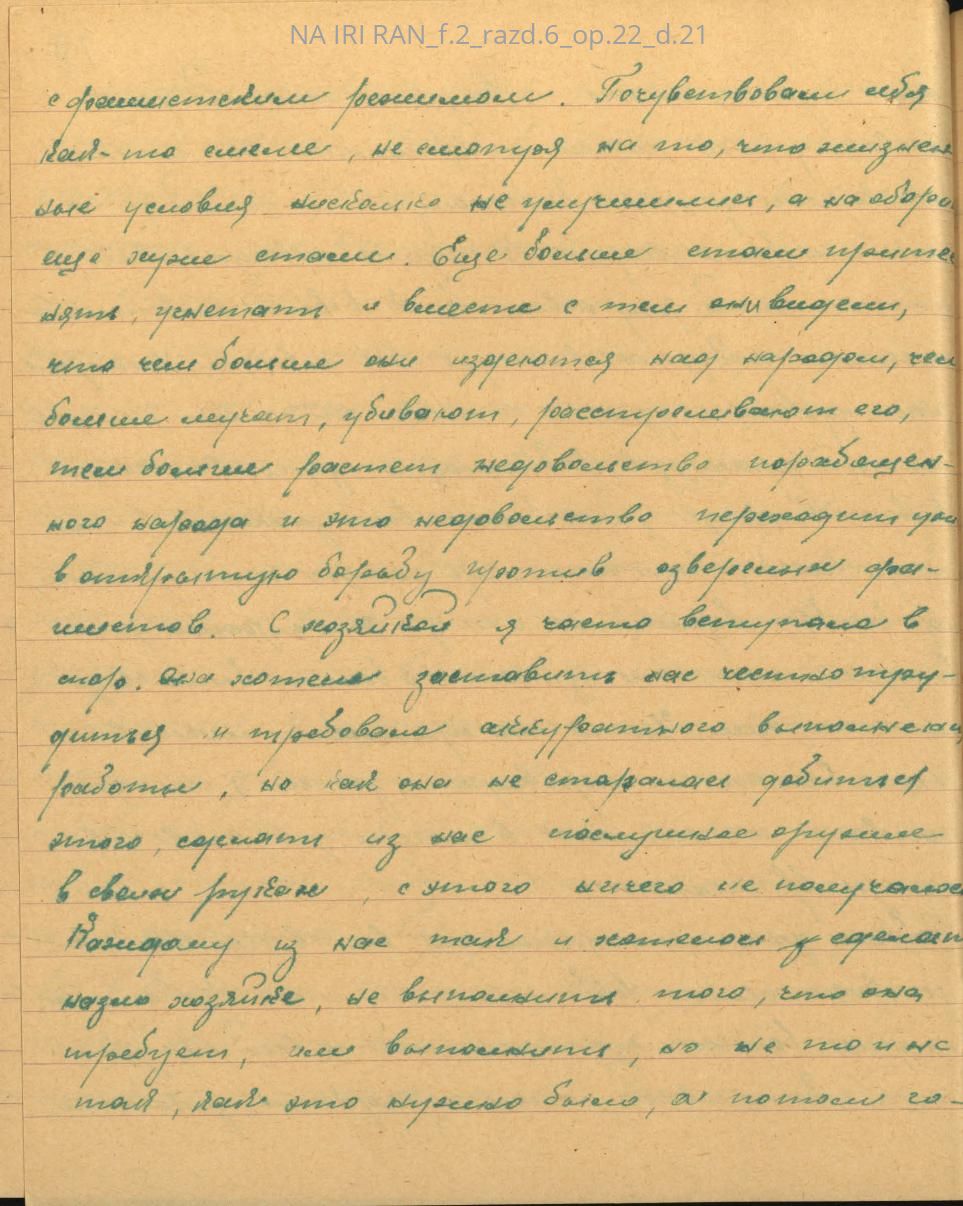 NA IRI RAN_f.2_razd.6_op.22_d.21
с фашистским режимом. Почувствовали себя
как-то смелее, не смотря на то, что жизнен
ные условия нисколько не улучшились, а на оборо
еще хуже стали. Еще больше стали притес
нять, угнетать и вместе с тем они видели,
что чем больше они издеются над народом, чем
больше мучат, убивают, расстреливают его,
тем больше растет недовольство порабощен-
ного народа и это недовольство переходит уже
в открытую борьбу против озверелых фа-
шистов. С хозяйкой я часто вступала в
спор. Она хотела заставить нас честно тру-
диться и требовала аккуратного выполнения
работы, но как она не старалась добиться
этого, сделать из нас послушное оружие
в своих руках, с этого ничего не получалось
Каждому из нас так и хотелось сделать
назло хозяйке, не выполнить того, что она
требует, или выполнить, но не то и не
так, как это нужно было, а потом го-